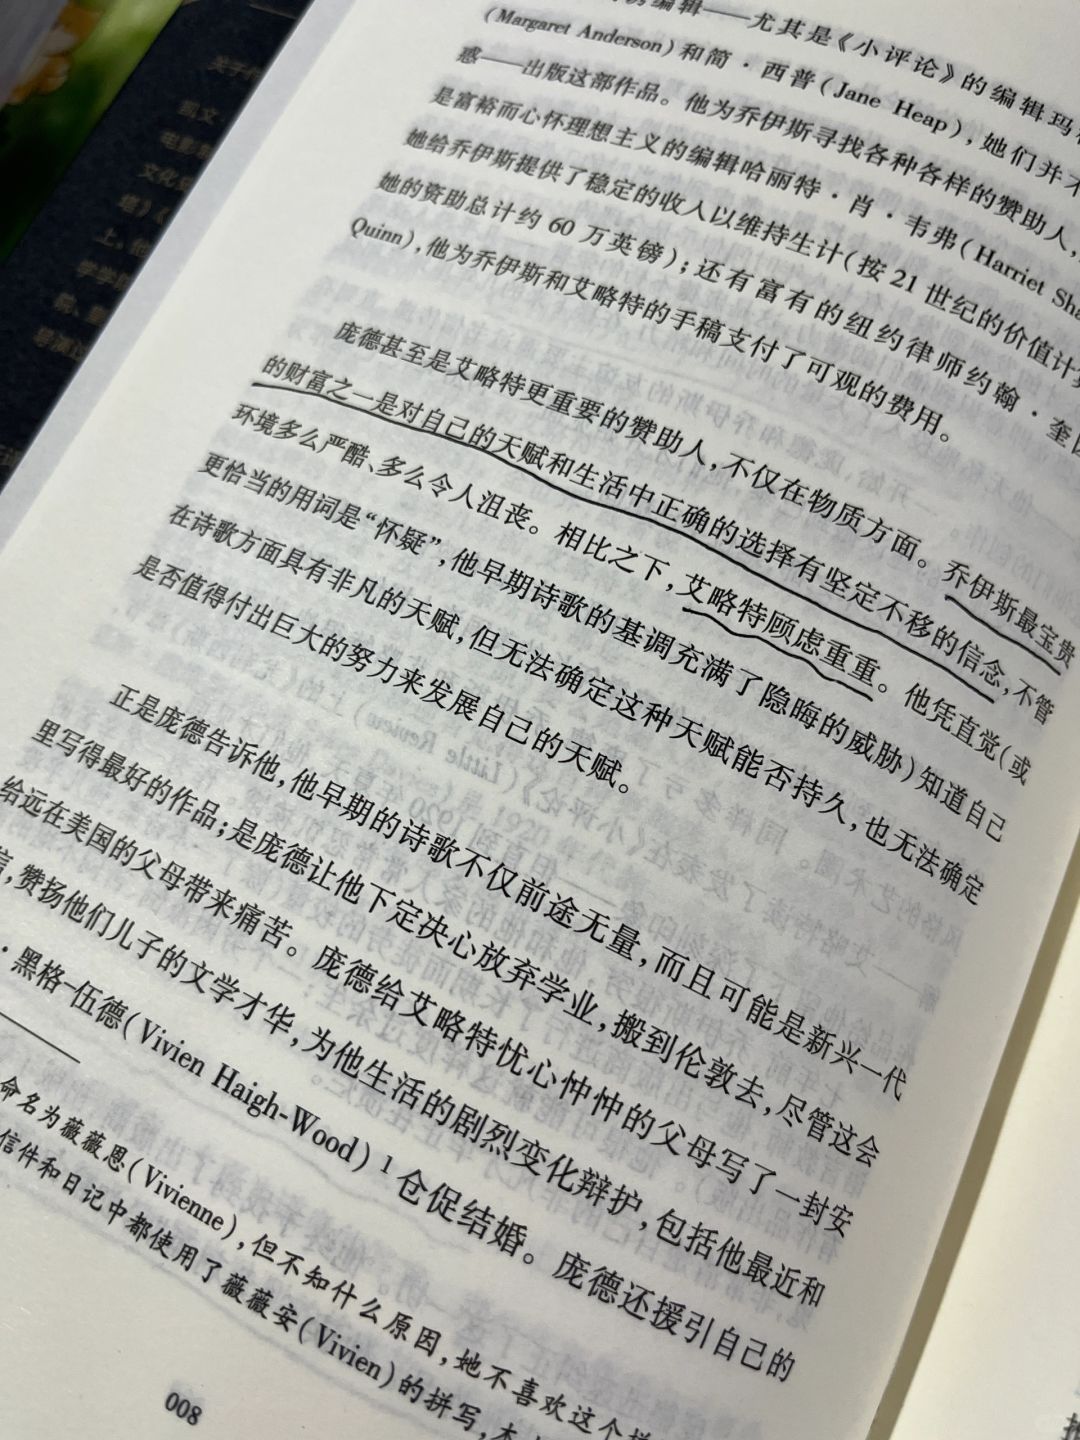 编辑——尤其是《小评论》的编辑玛
(Margaret Anderson)和简·西普(Jane Heap),她们并不
惑——出版这部作品。他为乔伊斯寻找各种各样的赞助人,
是富裕而心怀理想主义的编辑哈丽特·肖·韦弗(Harriet Sha
她给乔伊斯提供了稳定的收入以维持生计(按21世纪的价值计算
她的资助总计约60万英镑);还有富有的纽约律师约翰·奎因
Quinn),他为乔伊斯和艾略特的手稿支付了可观的费用。
庞德甚至是艾略特更重要的赞助人,不仅在物质方面。乔伊斯最宝贵
的财富之一是对自己的天赋和生活中正确的选择有坚定不移的信念,不管
环境多么严酷、多么令人沮丧。相比之下,艾略特顾虑重重。他凭直觉(或
更恰当的用词是“怀疑”,他早期诗歌的基调充满了隐晦的威胁)知道自己
在诗歌方面具有非凡的天赋,但无法确定这种天赋能否持久,也无法确定
是否值得付出巨大的努力来发展自己的天赋。
正是庞德告诉他,他早期的诗歌不仅前途无量,而且可能是新兴一代
里写得最好的作品;是庞德让他下定决心放弃学业,搬到伦敦去,尽管这会
给远在美国的父母带来痛苦。庞德给艾略特忧心忡忡的父母写了一封安
信,赞扬他们儿子的文学才华,为他生活的剧烈变化辩护,包括他最近和
·黑格-伍德(Vivien Haigh-Wood)1仓促结婚。庞德还援引自己的
命名为薇薇恩(Vivienne),但不知什么原因,她不喜欢这个拼
信件和日记中都使用了薇薇安(Vivien)的拼写,本
008
关于作
凯文
电影
文化
塔》《
上、他
学学
导演